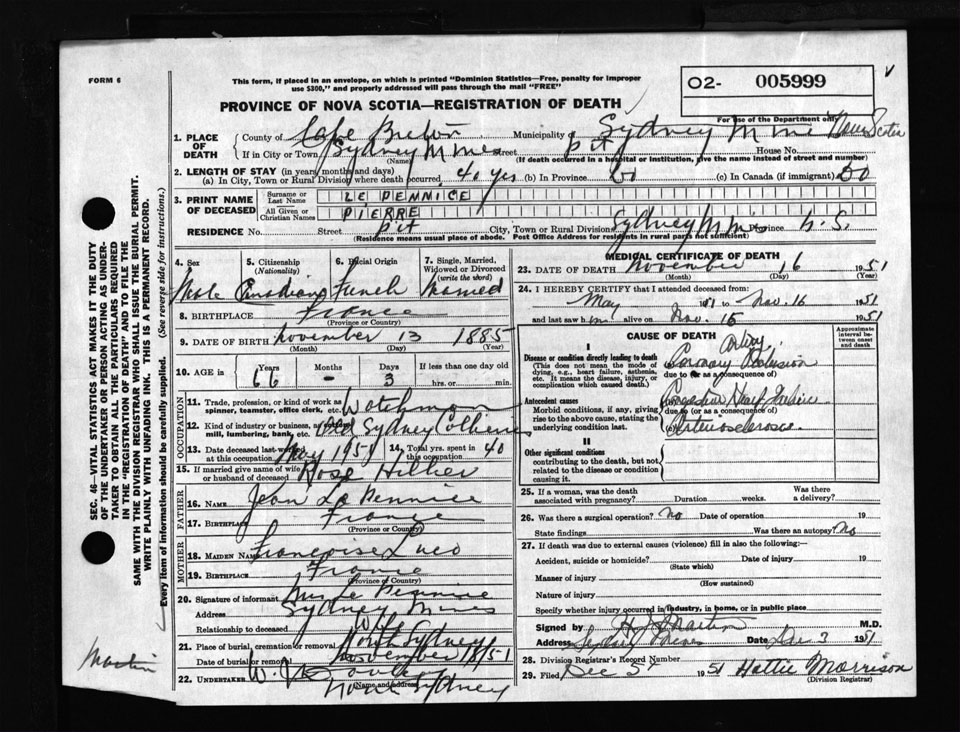 FORM 6
This form, if placed in an envelope, on which is printed "Dominion Statistics—Free, penalty for improper
use $300," and properly addressed will pass through the mail "FREE"
O2- 005999
PROVINCE OF NOVA SCOTIA—REGISTRATION OF DEATH
For use of the Department only
1. PLACE OF DEATH
County of Cape Breton Municipality of Sydney Mines Nova Scotia
If in City or Town Sydney Mines Street Pit House No.
(Name) (If death occurred in a hospital or institution, give the name instead of street and number)
2. LENGTH OF STAY (in years, months and days)
(a) In City, Town or Rural Division where death occurred 40 yrs (b) In Province (c) In Canada (if immigrant)
3. PRINT NAME OF DECEASED
Surname or Last Name LE PENNICE
All Given or Christian Names PIERRE
RESIDENCE No. Street Pit City, Town or Rural Division Sydney Mines Province N.S.
(Residence means usual place of abode. Post Office Address for residents in rural parts not sufficient)
4. Sex 5. Citizenship (Nationality) 6. Racial Origin 7. Single, Married, Widowed or Divorced (write the word)
Male Canadian French Married
8. BIRTHPLACE France
(Province or Country)
9. DATE OF BIRTH November 13 1885
(Month) (Day) (Year)
10. AGE Years Months Days If less than one day old
66 - 3 hrs. or min.
OCCUPATION
11. Trade, profession, or kind of work as spinner, teamster, office clerk, etc. Watchman
12. Kind of industry or business, as mill, lumbering, bank, etc. Old Sydney Collieries
13. Date deceased last worked at this occupation May 1951 14. Total yrs. spent in this occupation 40
15. If married give name of wife or husband of deceased Rose Hillier
FATHER
16. NAME Jean Le Pennice
17. BIRTHPLACE France
(Province or Country)
MOTHER
18. MAIDEN NAME Francoise
19. BIRTHPLACE France
(Province or Country)
20. Signature of informant Mrs Le Pennice
Address Sydney Mines
Relationship to deceased Wife
21. Place of burial, cremation or removal North Sydney
Date of burial or removal November 18/51
22. UNDERTAKER W.
(Name and address) North Sydney
MEDICAL CERTIFICATE OF DEATH
23. DATE OF DEATH November 16 1951
(Month) (Day) (Year)
24. I HEREBY CERTIFY that I attended deceased from:
May 1951 to Nov. 16 1951
and last saw him alive on Nov. 15 1951
CAUSE OF DEATH
Approximate interval between onset and death
I
Disease or condition directly leading to death
(This does not mean the mode of dying, e.g., heart failure, asthenia, etc. It means the disease, injury, or complication which caused death.)
Coronary Artery Occlusion
due to (or as a consequence of)
Antecedent causes
Morbid conditions, if any, giving rise to the above cause, stating the underlying condition last.
Congestive Heart Failure
due to (or as a consequence of)
Arteriosclerosis
II
Other significant conditions
contributing to the death, but not related to the disease or condition causing it.
25. If a woman, was the death associated with pregnancy? Duration weeks. Was there a delivery?
26. Was there a surgical operation? No Date of operation 19
State findings Was there an autopsy? No
27. If death was due to external causes (violence) fill in also the following:—
Accident, suicide or homicide? Date of injury 19
(State which)
Manner of injury
(How sustained)
Nature of injury
Specify whether injury occurred in industry, in home, or in public place
Signed by H. J. Martin M.D.
Address Sydney Mines Date Dec 3 1951
28. Division Registrar's Record Number
29. Filed Dec 5 1951 Hattie Morrison
(Division Registrar)
SEC. 46—VITAL STATISTICS ACT MAKES IT THE DUTY
OF THE UNDERTAKER OR PERSON ACTING AS UNDER-
TAKER TO OBTAIN ALL THE PARTICULARS REQUIRED
IN THE "REGISTRATION OF DEATH" AND TO FILE THE
SAME WITH THE DIVISION REGISTRAR WHO SHALL ISSUE THE BURIAL PERMIT.
WRITE PLAINLY WITH UNFADING INK. THIS IS A PERMANENT RECORD.
Every item of information should be carefully supplied. (See reverse side for instructions.)
Martin